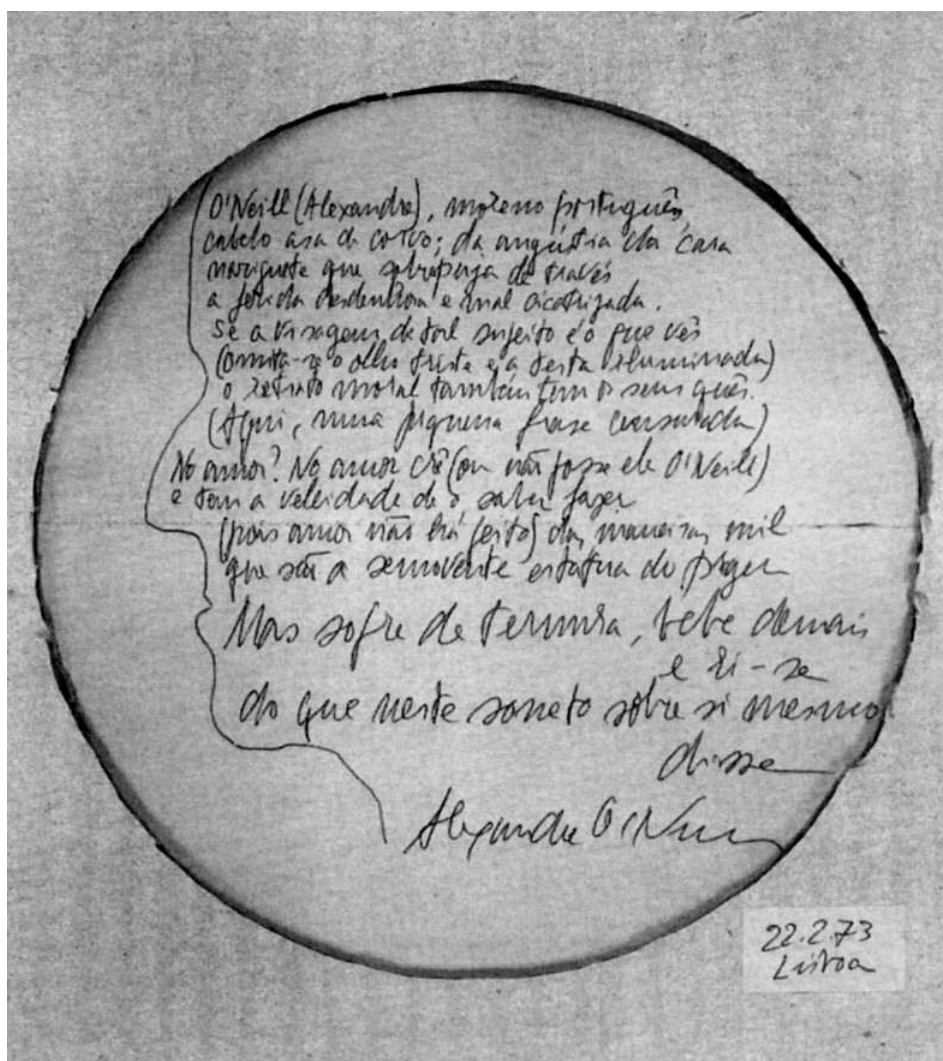 O'Neill (Alexandre), moreno português,
cabelo asa de corvo; da angústia da cara
nariguete que sobrepuja de través
a ferida desdenhosa e mal cicatrizada.
Se a visagem de tal sujeito é o que vês
(omita-se o olho triste e a testa iluminada)
o retrato moral também tem os seus quês.
(Aqui, uma pequena frase censurada)
No amor? No amor crê (ou não fosse ele O'Neill)
e tem a veleidade de o saber fazer
(pois amor não há feito) das maneiras mil
que são a semovente estátua do prazer
Mas sofre de ternura, bebe demais
e ri-se
do que neste soneto sobre si mesmo
disse
Alexandre O'Neill
22.2.73
Lisboa